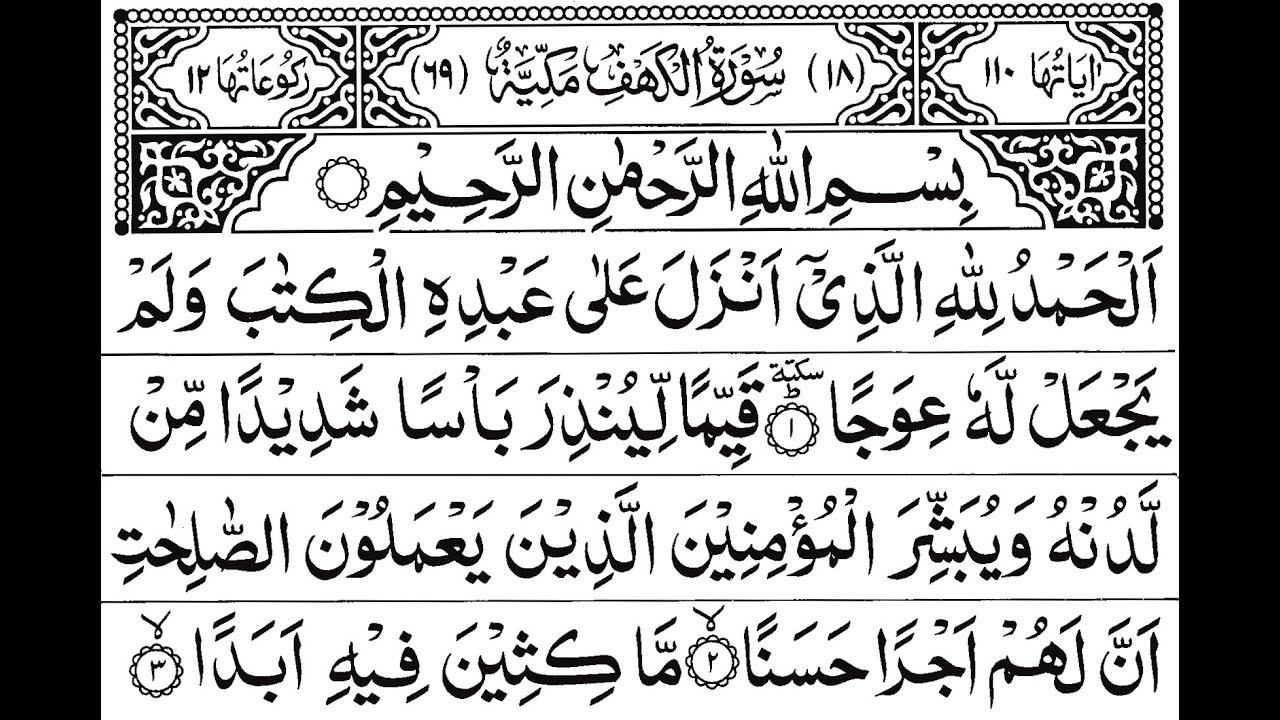 اٰيَاتُهَا ١١٠ (١٨) سُوْرَةُ الْكَهْفِ مَكِّيَّةٌ (٦٩) رُكُوْعَاتُهَا ١٢
بِسْمِ اللّٰهِ الرَّحْمٰنِ الرَّحِيْمِ
اَلْحَمْدُ لِلّٰهِ الَّذِىْۤ اَنْزَلَ عَلٰى عَبْدِهِ الْكِتٰبَ وَلَمْ
يَجْعَلْ لَّهٗ عِوَجًا ؕ سكتة ١ قَيِّمًا لِّيُنْذِرَ بَاْسًا شَدِيْدًا مِّنْ
لَّدُنْهُ وَيُبَشِّرَ الْمُؤْمِنِيْنَ الَّذِيْنَ يَعْمَلُوْنَ الصّٰلِحٰتِ
اَنَّ لَهُمْ اَجْرًا حَسَنًا ۙ ٢ مَّا كِثِيْنَ فِيْهِ اَبَدًا ۙ ٣